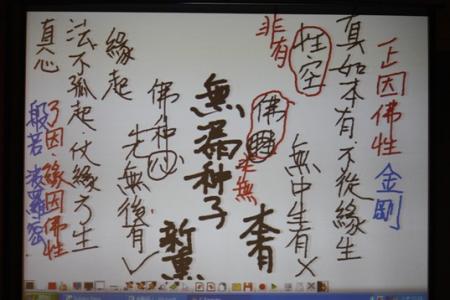 正因佛性 金剛
真如本有不從緣生
性空
非有
無中生有×
佛體
本無
本有
無漏种子
新熏
佛种心
先無後有✓
緣起
法不孤起,仗緣方生
了因、緣因佛性
真心
般若波羅密